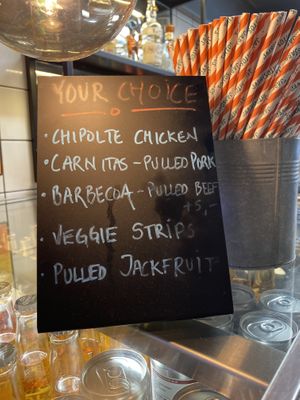 YOUR CHOICE
• CHIPOLTE CHICKEN
• CARNITAS - PULLED PORK
• BARBECOA - PULLED BEEF
+5,-
• VEGGIE STRIPS
• PULLED JACKFRUIT